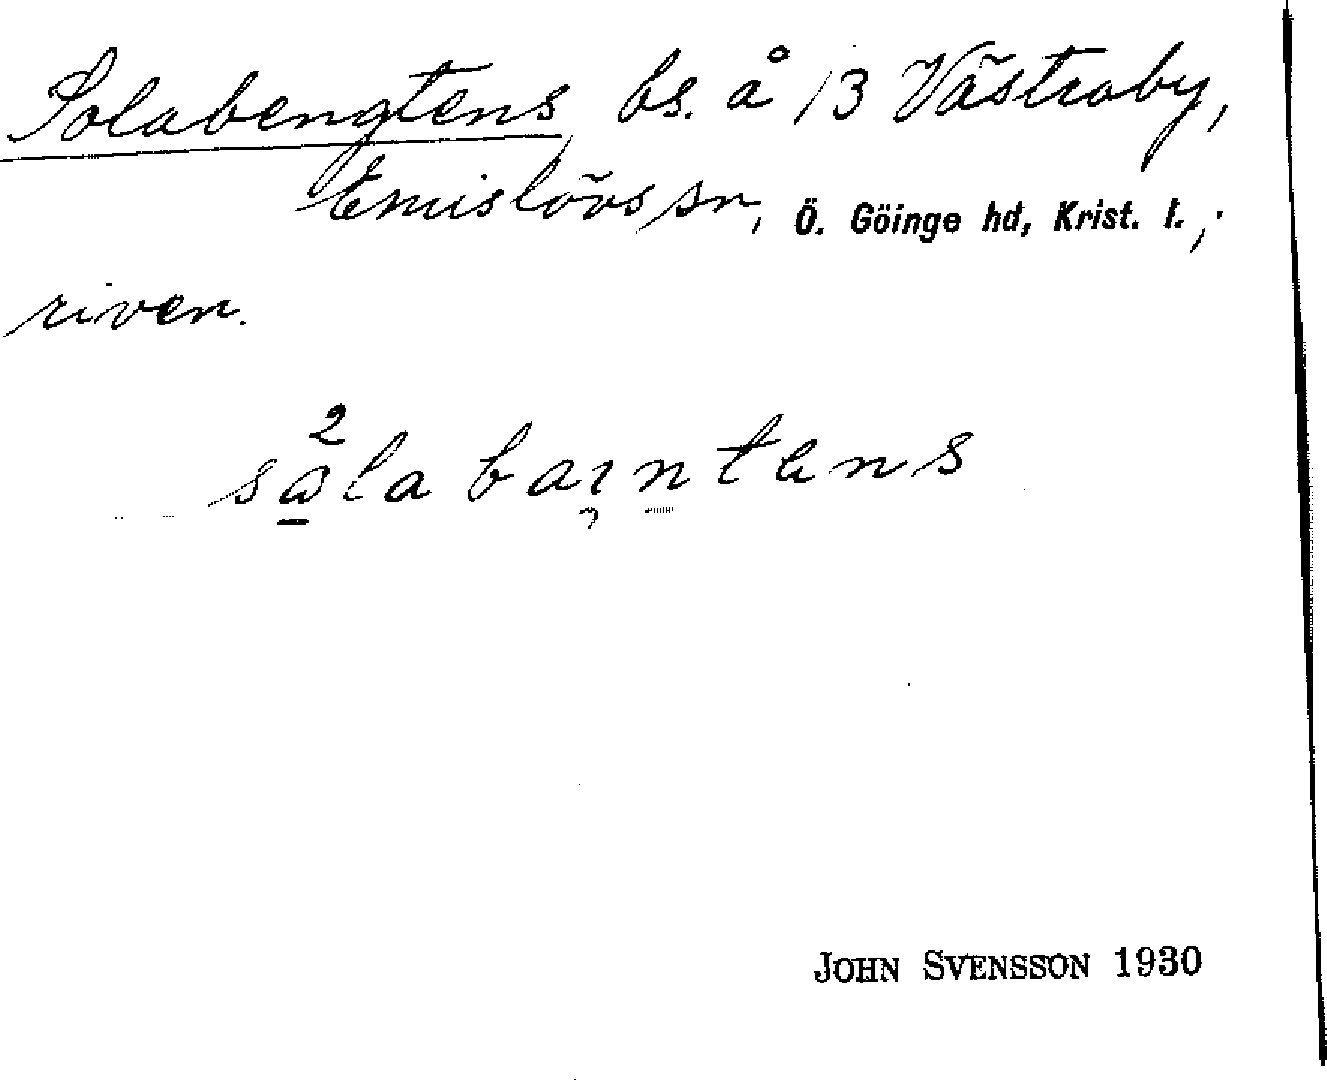 Solabengtens, bs. å /3 Västraby,
Emislövs sn, Ö. Göinge hd, Krist. l.,;
riven.
JOHN SVENSSON 1930